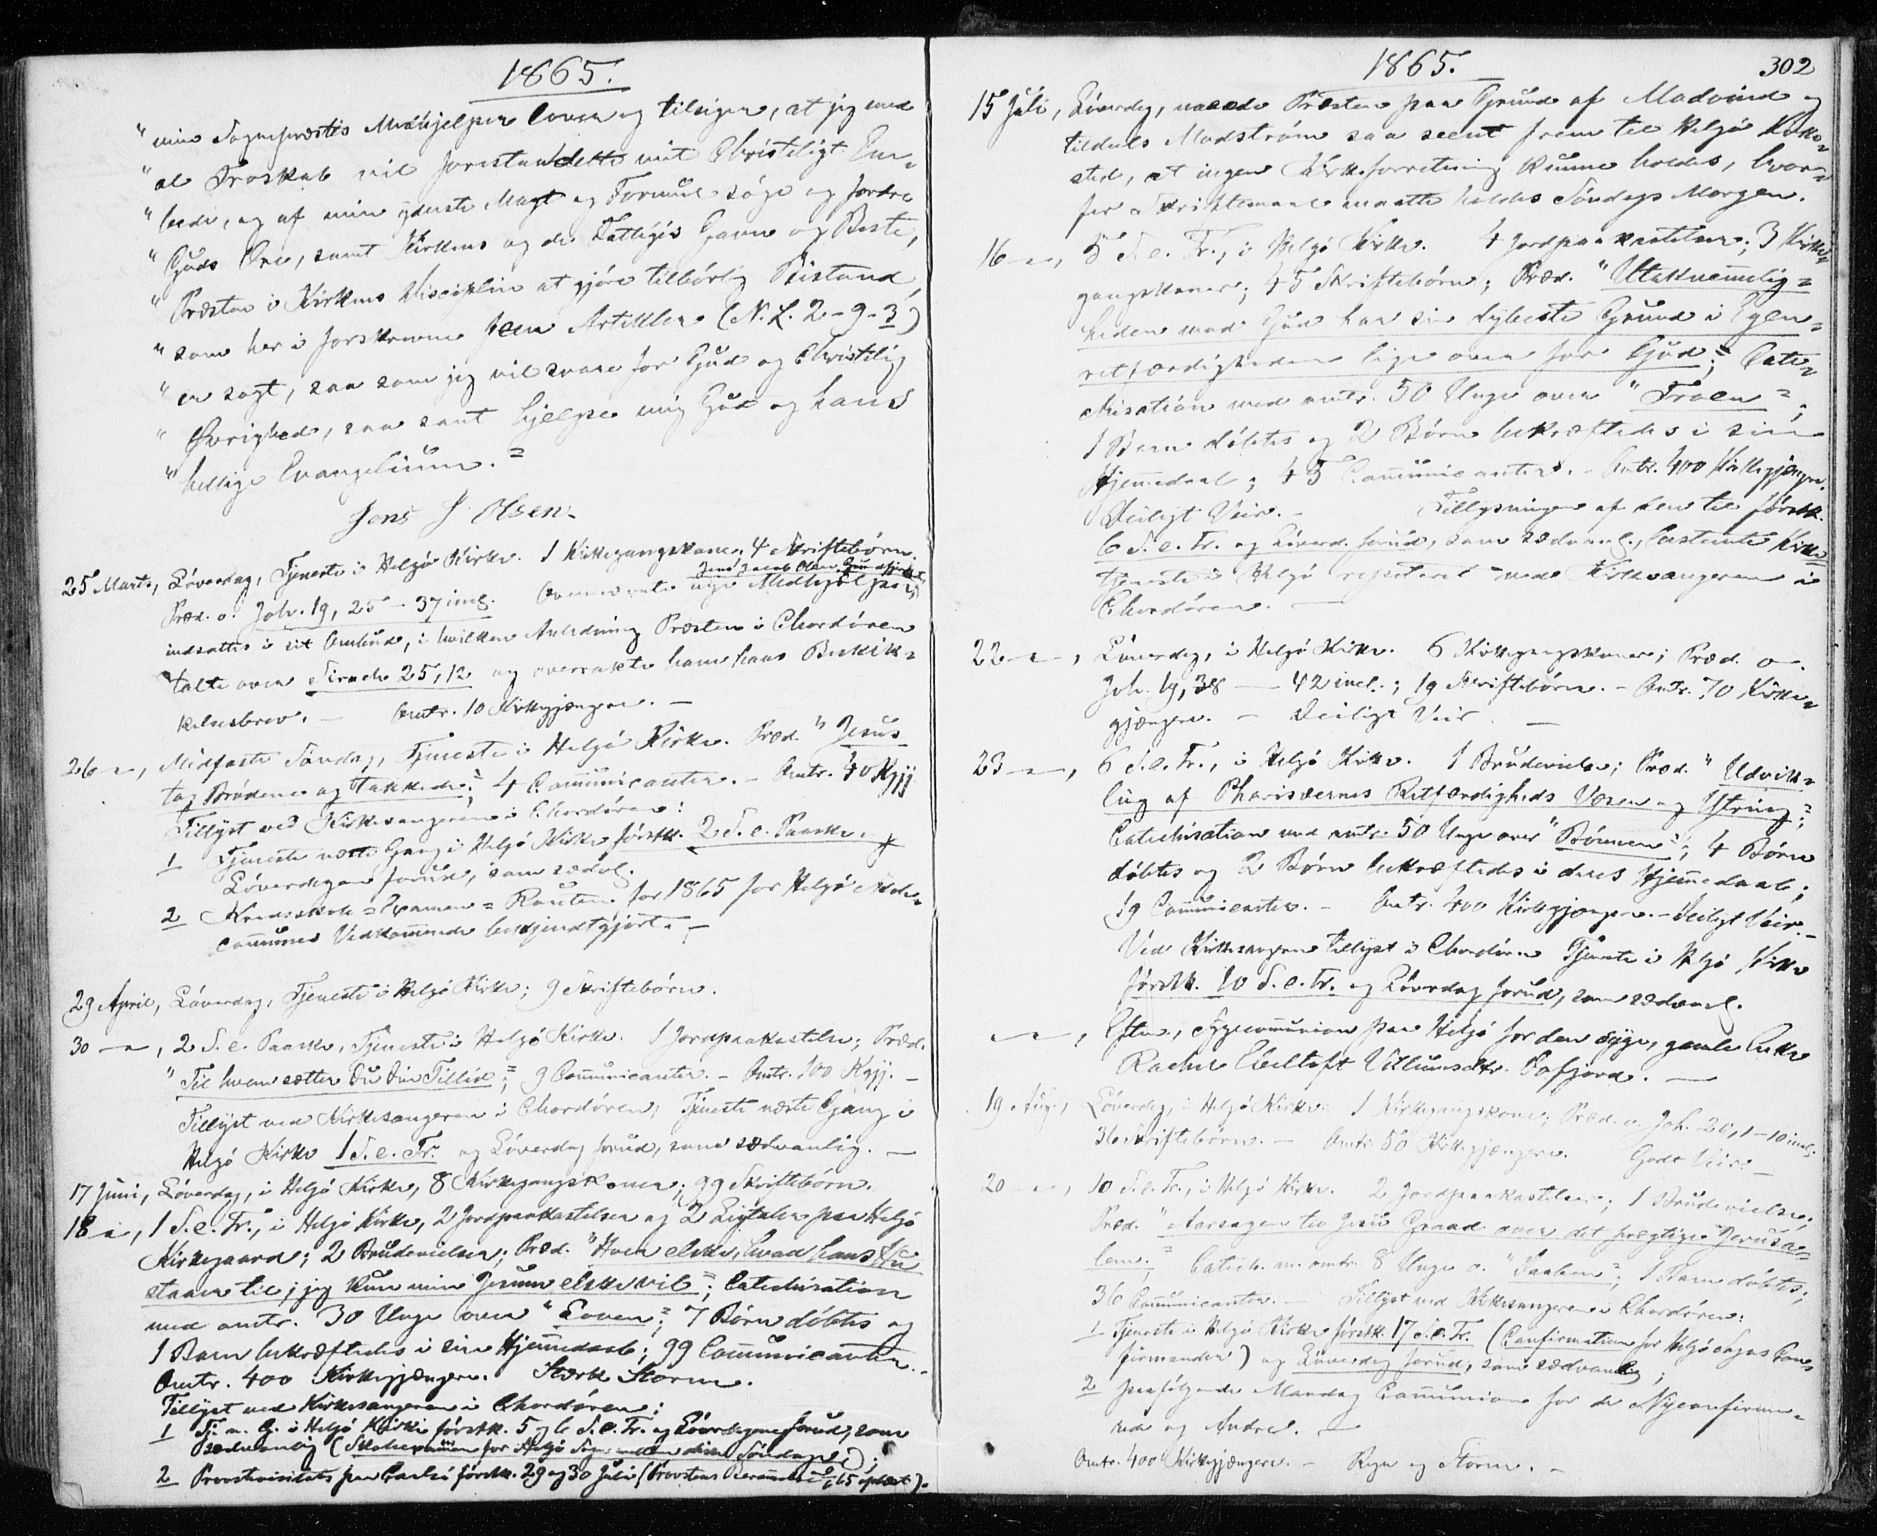 1865.
"min Sognepræstes Medhjelper lover og tilsiger, at jeg med
"al Troskab vil forestaa dette mit Christeligt Em-
"bede, og af min yderste Magt og Formue søge og fordre
"Guds Ære, samt Kirkens og de Fattiges Gavn og Beste,
"Præsten i Kirkens Disciplin at gjøre tilbørlig Bistand,
"som her i forskrevne fem Artikler (N. L. 2-9-3)
"er sagt, saa som jeg vil svare for Gud og Christelig
"Øvrighed, saa sant hjelpe mig Gud og hans
"hellige Evangelium."
Jens J Olsen.
25 Marts, Løverdag, Tjeneste i Helgø Kirke. 1 Kirkegangskone; 4 Skriftebørn.
Jens Jacob Olsen Grundfjord
Præd. o. Joh. 19, 25-37 incl. Ovennævnte nye Medhjelper
indsattes i sit Ombud, i hvilken Anledning Præsten i Chordøren
talte over Sirach 25, 12 og overrakte ham hans Beskik-
kelsesbrev. — Omtr. 10 Kirkegjængere. —
26 —, Midfaste Søndag, Tjeneste i Helgø Kirke. Præd. "Jesus
tog Brødene og takkede"; 4 Communicanter. - Omtr. 40 Kgjj.
Tillyst ved Kirkesangeren i Chordøren:
1 Tjeneste næste Gang i Helgø Kirke førstk. 2 S. e. Paaske og
Løverdagen forud, som sædvl.
2 Kredsskole-Examen-Routen for 1865 for Helgø Skole-
communes Vedkommende bekjendtgjort. —
29 April, Løverdag, Tjeneste i Helgø Kirke; 9 Skriftebørn.
30 —, 2 S. e. Paaske, Tjeneste i Helgø Kirke. 1 Jordpaakastelse; Præd.
"Til hvem sætter du din Tillid"; 9 Communicanter. - Omtr. 100 Kgjj. —
Tillyst ved Kirkesangeren i Chordøren, Tjeneste næste Gang i
Helgø Kirke 1 S. e. Tr. og Løverdag forud, som sædvanlig. —
17 Juni, Løverdag, i Helgø Kirke, 8 Kirkegangskoner; 99 Skriftebørn.
18 —, 1 S. e. Tr., i Helgø Kirke, 2 Jordpaakastelser og 2 Ligtaler paa Helgø
Kirkegaard; 2 Brudevielser; Præd. "Hver elske, hvad hans Hu
staaer til; jeg kun min Jesum elske vil"; Catechisation
med omtr. 30 Unge over "Loven"; 7 Børn døbtes og
1 Barn bekræftedes i sin Hjemmedaab; 99 Communicanter. -
Omtr. 400 Kirkegjængere. Stærk Storm.
Tillyst ved Kirkesangeren i Chordøren:
1 Tj. n. G. i Helgø Kirke førstk. 5 og 6 S. e. Tr. og Løverdagene forud, som
sædvanlig (Skoleexamen for Helgø Sogn mellem disse Søndage);
2 Provstevisitats paa Carlsø førstk. 29 og 30 Juli (Provstens Berammelse oplæst).
1865. 302
15 Juli, Løverdag, naaede Præsten paa Grund af Modvind og
tildels Modstrøm saa seent frem til Helgø Kirke-
sted, at ingen Kirkeforretning kunne holdes, hvor-
for Skriftemaal maatte holdes Søndags Morgen.
16 —, 5 S. e. Tr., i Helgø Kirke. 4 Jordpaakastelser; 3 Kirke-
gangskoner; 45 Skriftebørn; Præd. "Utaknemmelig-
heden mod Gud har sin dybeste Grund i Egen-
retfærdigheden lige over for Gud"; Cate-
chisation med omtr. 50 Unge over "Troen";
1 Barn døbtes og 2 Børn bekræftedes i sin
Hjemmedaab; 45 Communicanter. - Omtr. 400 Kirkegjængere.
Deiligt Veir. - Tillysningen af den til førstk.
6 S. e. Tr. og Løverd. forud, som sædvanl., bestemte Kirke-
tjeneste i Helgø repeteret ved Kirkesangeren i
Chordøren. —
22 —, Løverdag, i Helgø Kirke. 6 Kirkegangskoner; Præd. o.
Joh. 19, 38 — 42 incl.; 19 Skriftebørn. - Omtr. 70 Kirke-
gjængere. — Deiligt Veir. —
23 —, 6 S. e. Tr., i Helgø Kirke. 1 Brudevielse; Præd. "Udvik-
ling af Pharisæernes Retfærdigheds Væsen og Yttring";
Catechisation med omtr. 50 Unge over "Bønnen"; 4 Børn
døbtes og 2 Børn bekræftedes i deres Hjemmedaab;
19 Communicanter. - Omtr. 400 Kirkegjængere. - Deiligt Veir. -
Ved Kirkesangeren tillyst i Chordøren Tjeneste i Helgø Kirke
førstk. 10 S. e. Tr. og Løverdag forud, som sædvanl.
—, Efterm., Sygecommunion paa Helgø for den syge, gamle Enke
Rachel Ebeltoft Villumsdtr. Lofjord. —
19 Aug., Løverdag, i Helgø Kirke. 1 Kirkegangskone; Præd. o. Joh. 20, 1-10 incl.
36 Skriftebørn. — Omtr. 50 Kirkegjængere. Godt Veir. —
20 —, 10 S. e. Tr., i Helgø Kirke. 2 Jordpaakastelser; 1 Brudevielse;
Præd. "Aarsagen til Jesu Graad over det prægtige Jerusa-
lem"; Catech. m. omtr. 8 Unge o. "Daaben"; 1 Barn døbtes;
36 Communicanter. — Tillyst ved Kirkesangeren i Chordøren:
1 Tjeneste i Helgø Kirke førstk. 17 S. e. Tr. (Confirmation for Helgø Sogns Con-
firmander) og Løverdag forud, som sædvanlig,
2 paafølgende Mandag Communion for de Nyconfirme-
rede og Andre. —
Omtr. 400 Kirkegjængere. — Regn og Storm. -